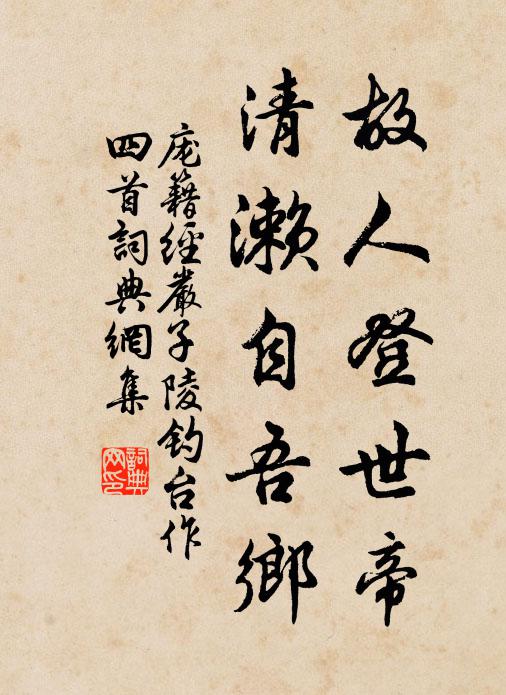 故人登世帝
清濑自吾鄉
庞籍經嚴子陵钓台作
四首詞典網集
詞典
网印